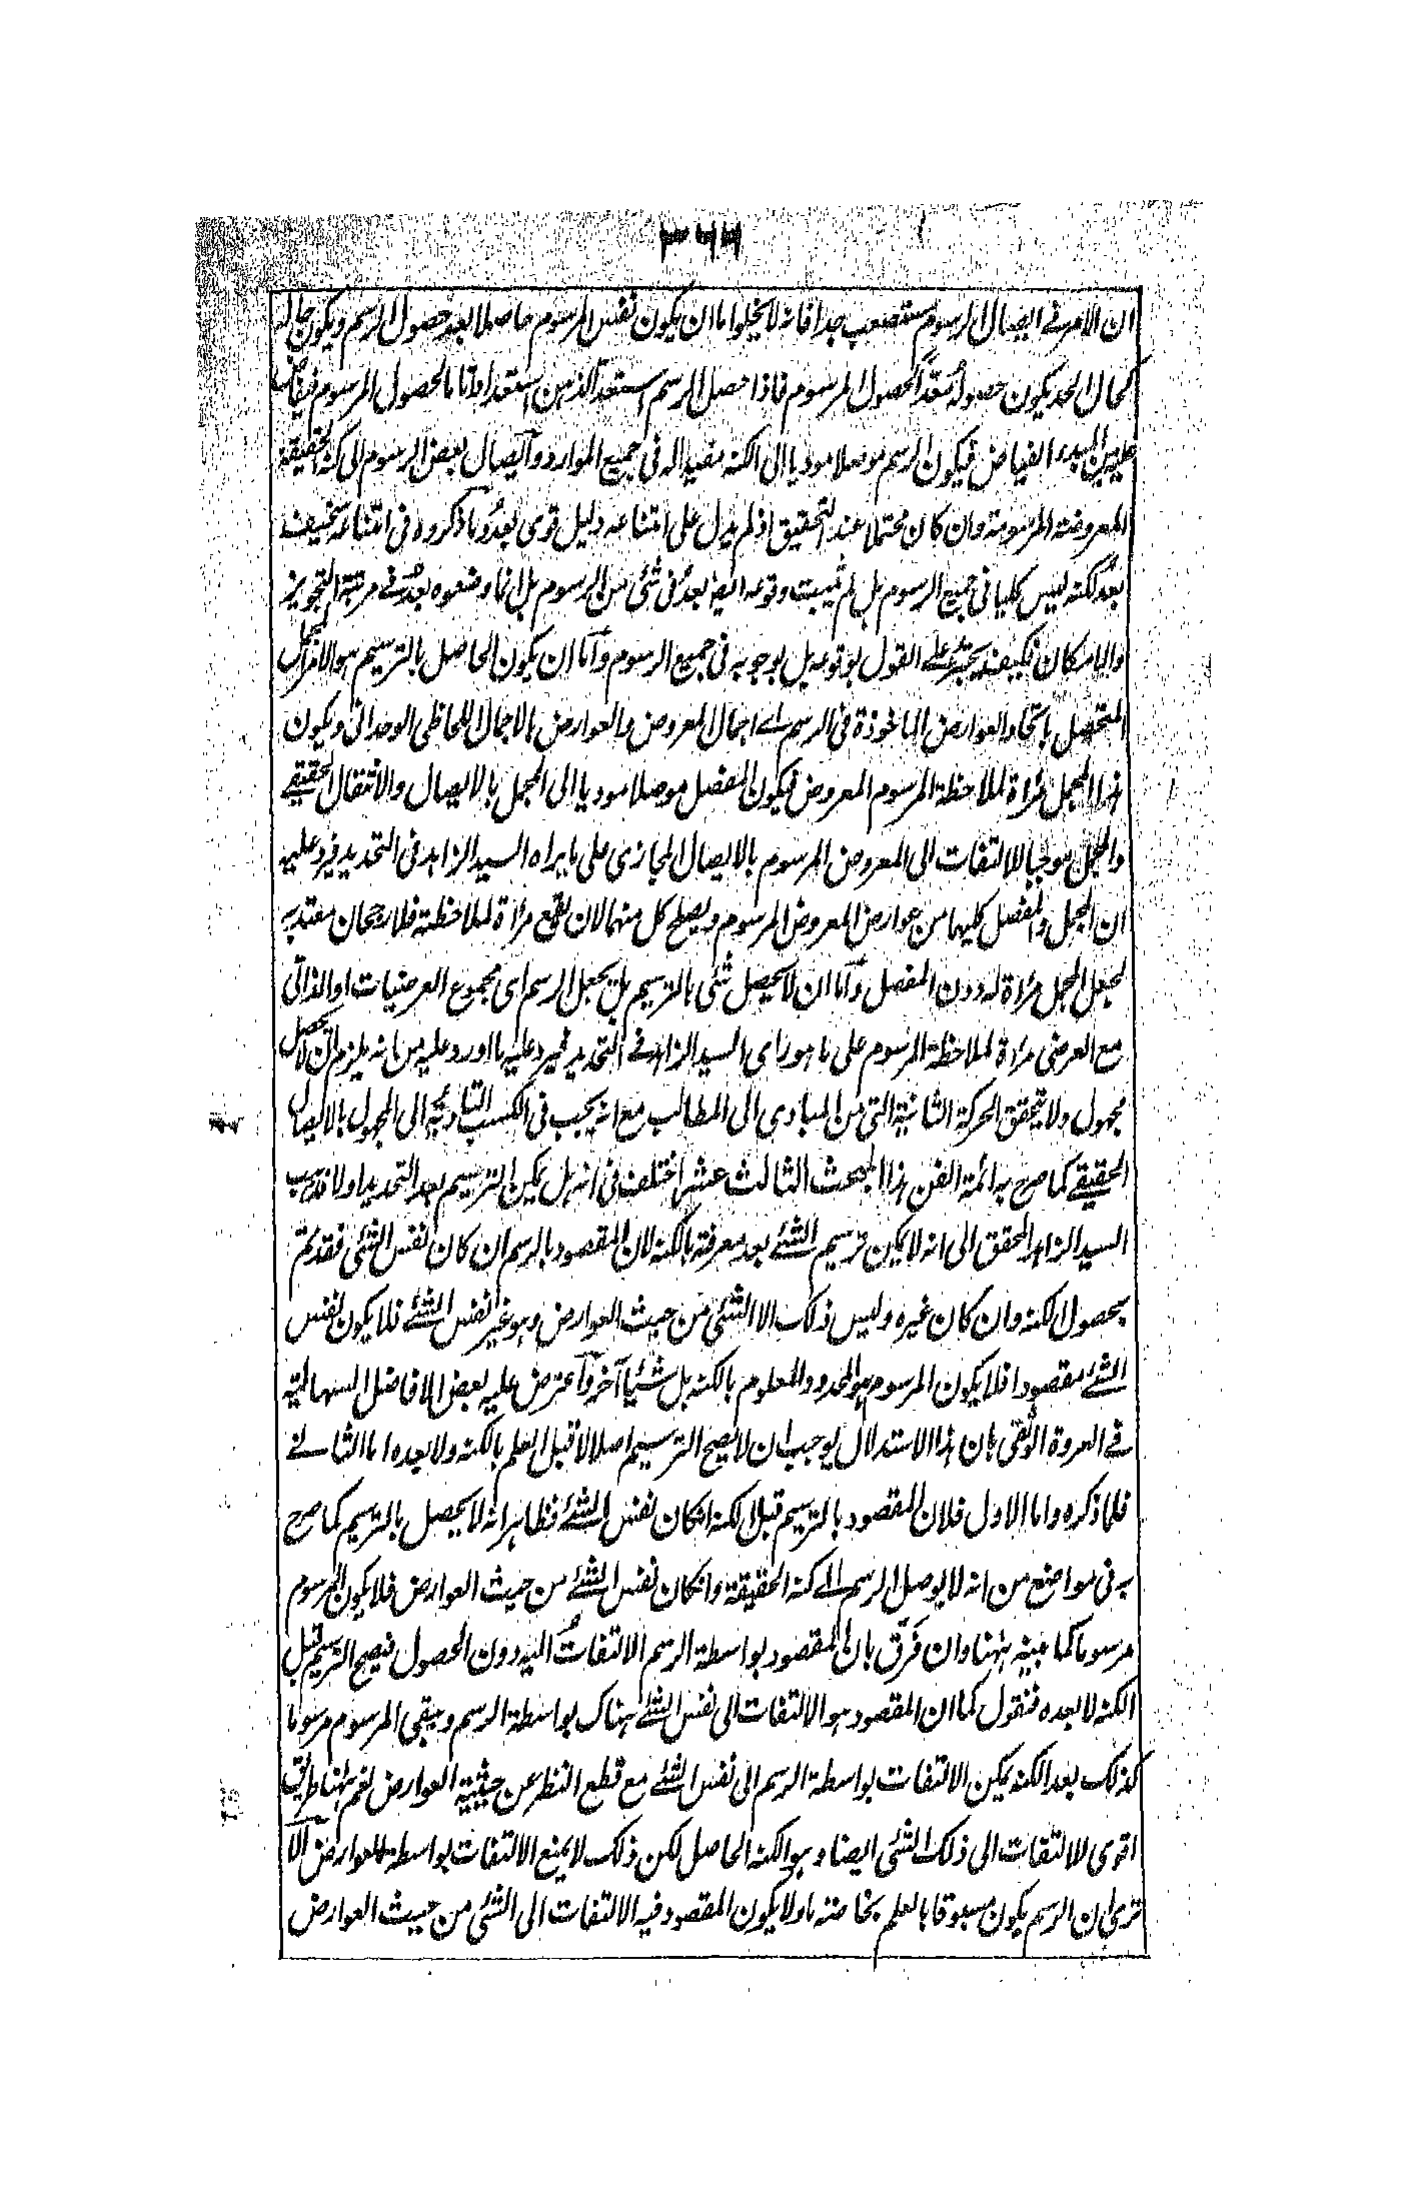 ٣٦٦
ان الامر فى ايصال الرسوم مستصعب جدا فانه لا يخلو اما ان يكون نفس المرسوم حاصلا بعد حصول الرسم ويكون حاله
كحال الحد يكون حصوله مُعدّاً لحصول المرسوم فاذا حصل الرسم استعد الذهن استعدادا تاما لحصول المرسوم فيفاض
عليه من المبدء الفياض فيكون الرسم موصلا موديا الى الكنه مفيدا له فى جميع الموارد وايصال بعض الرسوم الى كنه الحقيقة
المعروضة المرسومة وان كان محتملا عند التحقيق اذ لم يدل على امتناعه دليل قوى بعدُ وما ذكروه فى اتناعه سخيف
بعدُ لكنه ليس كليا فى جميع الرسوم بل لم يثبت وقوعه ايضا بعدُ فى شئ من الرسوم بل انما وضعوه بعدُ فى مرتبة التجويز
والامكان فكيف يجترء على القول بوقوعه بل بوجوبه فى جميع الرسوم واما ان يكون الحاصل بالترسيم هو الامر المجمل
المتحصل باتحاد العوارض الماخوذة فى الرسم اے اجمال المعروض والعوارض بالاجمال اللحاظى الوحدانى ويكون
هذا المجمل مرآة لملاحظة المرسوم المعروض فيكون المفصل موصلا موديا الى المجمل بالايصال والانتقال الحقيقے
والمجمل موجبا للالتفات الى المعروض المرسوم بالايصال المجازى على ما يراه السيد الزاهد فى التحديد فيرد عليه
ان المجمل والمفصل كليهما من عوارض المعروض المرسوم ويصلح كل منهما لان يقع مرآة لملاحظته فلا رجحان معتدبه
لجعل المجمل مرآة له دون المفصل واما ان لا يحصل شئ بالترسيم بل يجعل الرسم اى مجموع العرضيات او الذاتى
مع العرضى مرآة لملاحظة المرسوم على ما هو راى السيد الزاهد فى التحديد فيرد عليه ما اورد عليه من انه يلزم ان لا يحصل
مجهول ولا تتحقق الحركة الثانية التى من المبادى الى المطالب مع انه يجب فى الكسب التادية الى المجهول بالايصال
الحقيقے كما صرح به ائمة الفن هذا البحث الثالث عشر اختلف فى انه هل يمكن الترسيم بعد التحديد او لا فذهب
السيد الزاهد المحقق الى انه لا يمكن ترسيم الشئے بعد معرفته بالكنه لان المقصود بالرسم ان كان نفس الشئ فقد تم
بحصول الكنه وان كان غيره وليس ذلك الا الشئ من حيث العوارض وهو غير نفس الشئے فلا يكون نفس
الشئے مقصودا فلا يكون المرسوم هو المحدود والمعلوم بالكنه بل شيئا آخر واعترض عليه بعض الافاضل السهالية
فى العروة الوثقى بان هذا الاستدلال يوجب ان لا يصح الترسيم اصلا لا قبل العلم بالكنه ولا بعده اما الثانے
فلما ذكره واما الاول فلان المقصود بالترسيم قبل الكنه ان كان نفس الشئے فظاهر انه لا يحصل بالترسيم كما صرح
به فى مواضع من انه لا يوصل الرسم الے كنه الحقيقة وان كان نفس الشئے من حيث العوارض فلا يكون المرسوم
مرسوما كما بينه ههنا وان فَرّق بان المقصود بواسطة الرسم الالتفات اليه دون الحصول فيصح الترسيم قبل
الكنه لا بعده فنقول كما ان المقصود هو الالتفات الى نفس الشئے هناك بواسطة الرسم ويبقى المرسوم مرسوما
كذلك بعد الكنه يمكن الالتفات بواسطة الرسم الى نفس الشئے مع قطع النظر عن حيثية العوارض نعم ههنا طريق
اقوى للالتفات الى ذلك الشئ ايضا وهو الكنه الحاصل لكن ذلك لا يمنع الالتفات بواسطة العوارض الا
ترى ان الرسم يكون مسبوقا بالعلم بخاصته ما ولا يكون المقصود فيه الالتفات الى الشئ من حيث العوارض